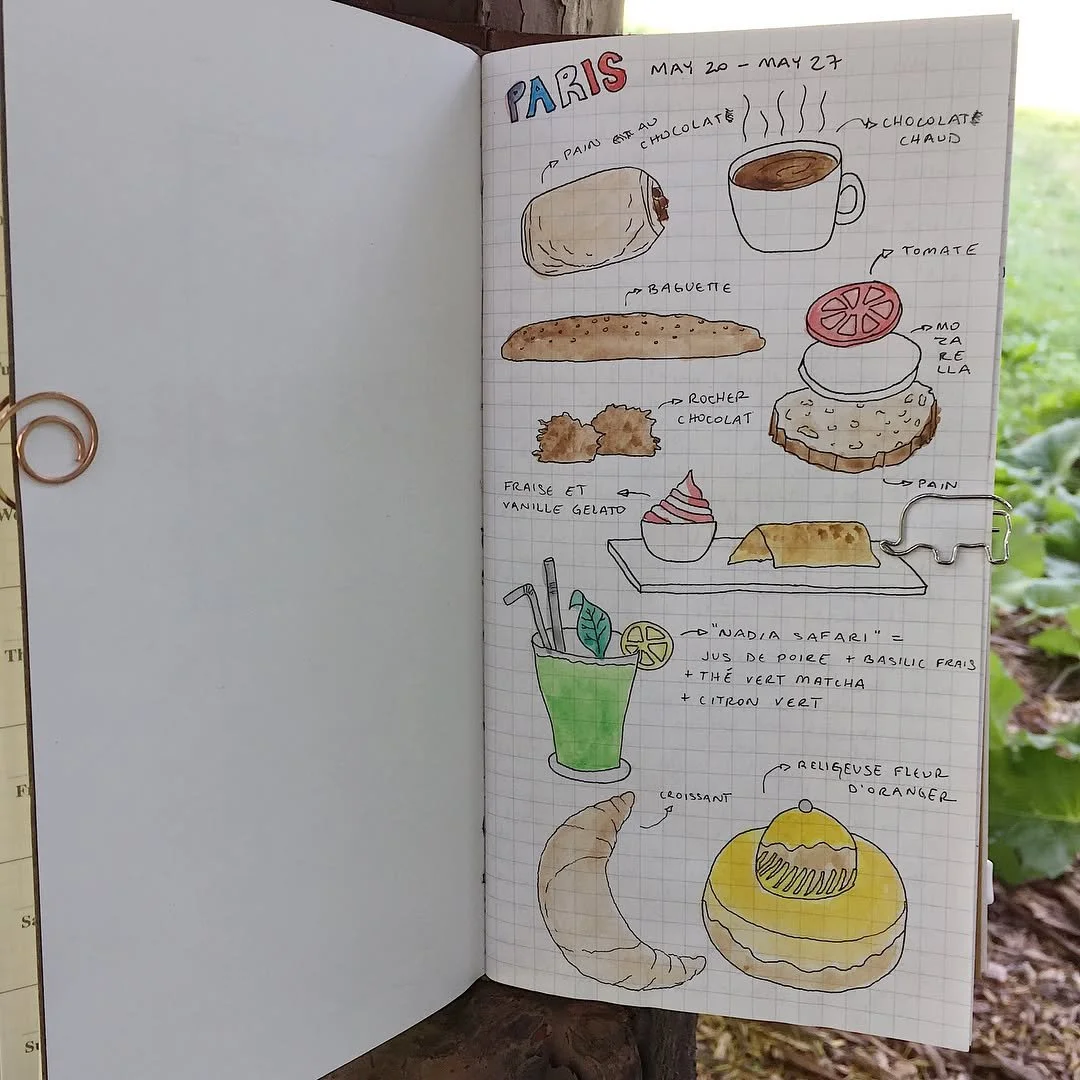 PARIS MAY 20 - MAY 27
PAIN AU
CHOCOLAT
CHOCOLAT
CHAUD
TOMATE
BAGUETTE
MO
ZA
RE
LLA
ROCHER
CHOCOLAT
PAIN
FRAISE ET
VANILLE GELATO
"NADIA SAFARI" =
JUS DE POIRE + BASILIC FRAIS
+ THÉ VERT MATCHA
+ CITRON VERT
RELIGEUSE FLEUR
D'ORANGER
CROISSANT